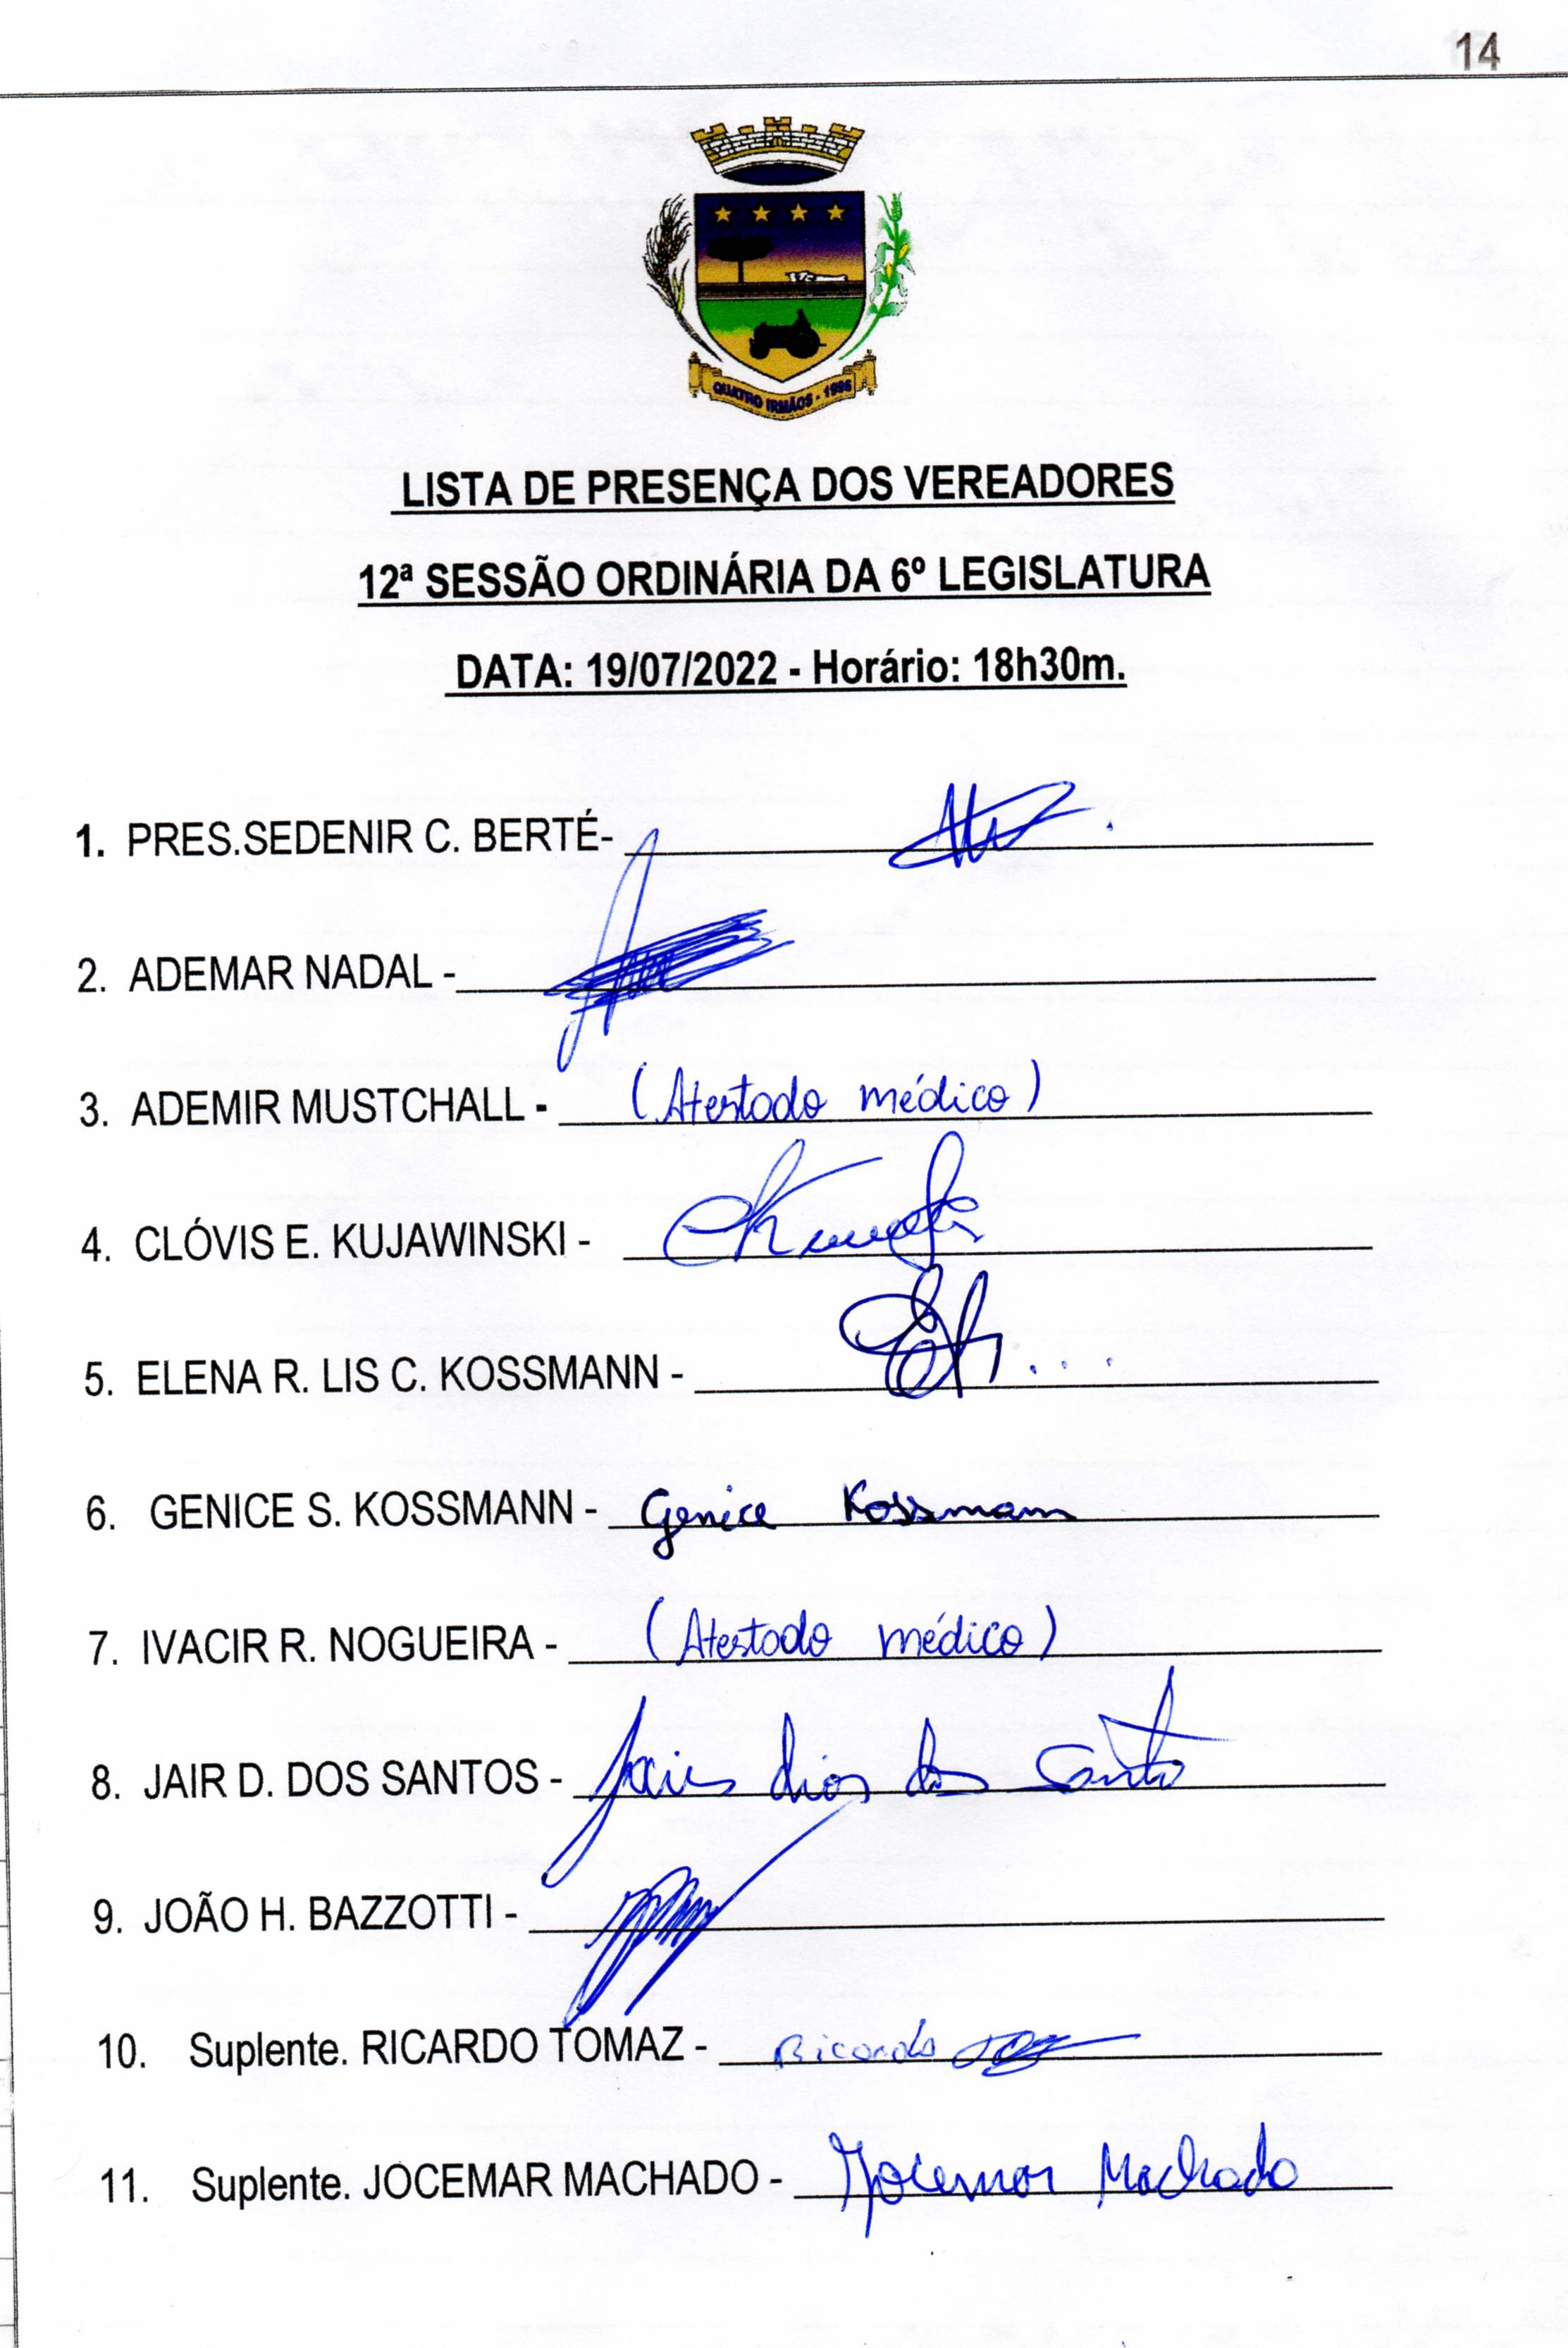 14
QUATRO IRMÃOS - 1996
LISTA DE PRESENÇA DOS VEREADORES
12ª SESSÃO ORDINÁRIA DA 6º LEGISLATURA
DATA: 19/07/2022 - Horário: 18h30m.
1. PRES.SEDENIR C. BERTÉ-
2. ADEMAR NADAL -
3. ADEMIR MUSTCHALL - (Atestado médico)
4. CLÓVIS E. KUJAWINSKI -
5. ELENA R. LIS C. KOSSMANN -
6. GENICE S. KOSSMANN - Genice Kossmann
7. IVACIR R. NOGUEIRA - (Atestado médico)
8. JAIR D. DOS SANTOS - Jair dias dos Santos
9. JOÃO H. BAZZOTTI -
10. Suplente. RICARDO TOMAZ - Ricardo
11. Suplente. JOCEMAR MACHADO - Jocemar Machado